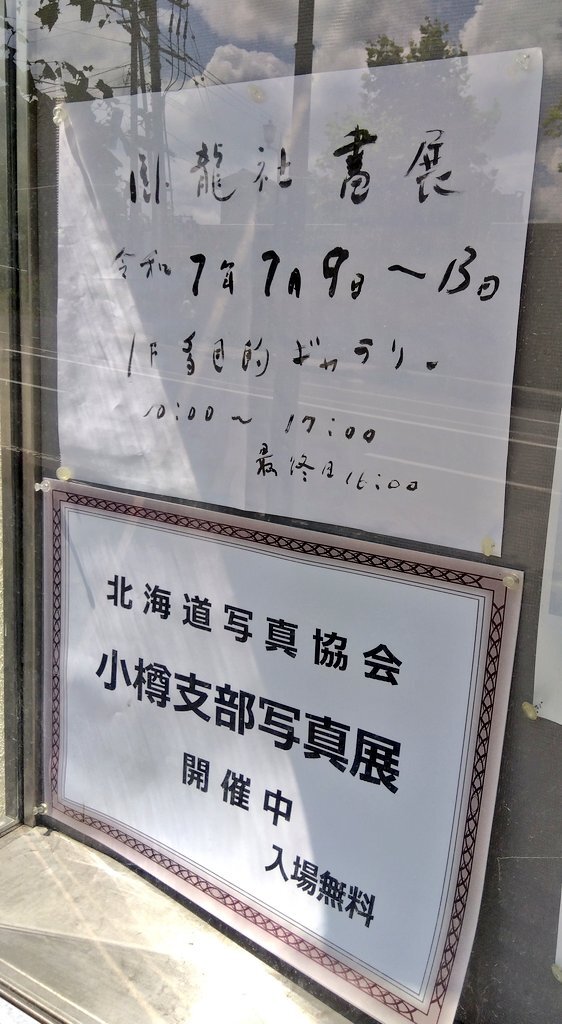 臥龍社書展
令和7年7月9日〜13日
1F多目的ギャラリー
10:00〜17:00
最終日16:00
北海道写真協会
小樽支部写真展
開催中
入場無料